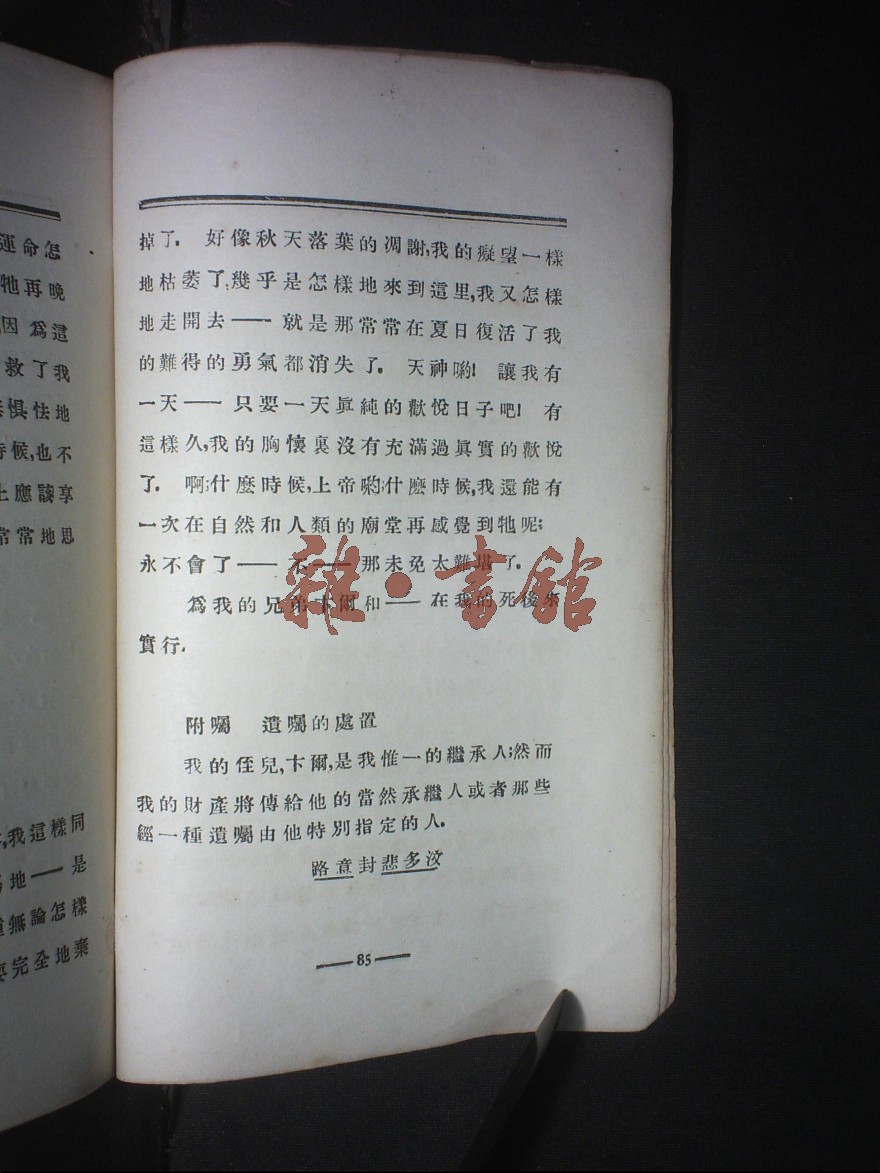 運命怎
牠再晚
因爲這
救了我
惧怯地
時候,也不
上應該享
常常地思
我這樣同
地——是
無論怎樣
要完全地棄
掉了. 好像秋天落葉的凋謝,我的癡望一樣
地枯萎了;幾乎是怎樣地來到這里,我又怎樣
地走開去—— 就是那常常在夏日復活了我
的難得的勇氣都消失了. 天神喲! 讓我有
一天—— 只要一天眞純的歡悅日子吧! 有
這樣久,我的胸懷裏沒有充滿過眞實的歡悅
了. 啊;什麼時候,上帝喲;什麼時候,我還能有
一次在自然和人類的廟堂再感覺到牠呢;
永不會了—— 不—— 那未免太難堪了.
爲我的兄弟卞爾和—— 在我的死後來
實行.
附囑 遺囑的處置
我的侄兒,卞爾,是我惟一的繼承人;然而
我的財產將傳給他的當然承繼人或者那些
經一種遺囑由他特別指定的人.
路意封悲多汶
——85——
雜·書館